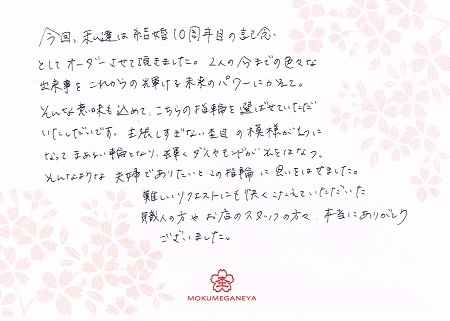 今回、私達は結婚10周年目の記念
としてオーダーさせて頂きました。2人の今までの色々な
出来事をこれからの輝ける未来のパワーにかえて。
そんな意味も込めて、こちらの指輪を選ばせていただ
いたしだいです。主張しすぎない杢目の模様が1つに
なってまあるい輪となり、輝くダイヤモンドが光をはなつ。
そんなような夫婦でありたいとこの指輪に思いをはせました。
難しいリクエストにも快くこたえていただいた
職人の方やお店のスタッフの方々、本当にありがとう
ございました。
MOKUMEGANEYA